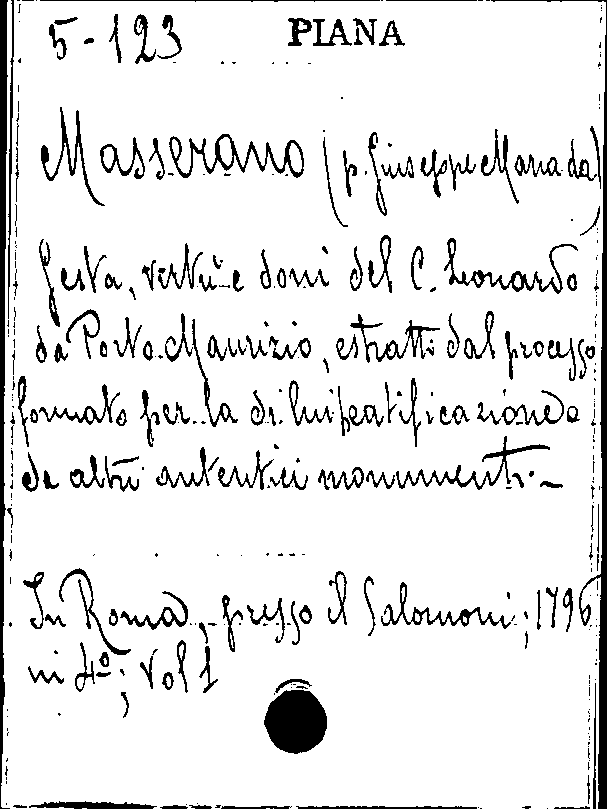 5-123 PIANA
Masserano (p. Giuseppe Maria da)
Gesta, virtù e doni del C. Leonardo
da Porto Maurizio, estratti dal processo
formato per la di lui beatificazione e
da altri autentici monumenti.-
In Roma, presso il Salomoni; 1796
in 4º; Vol 1